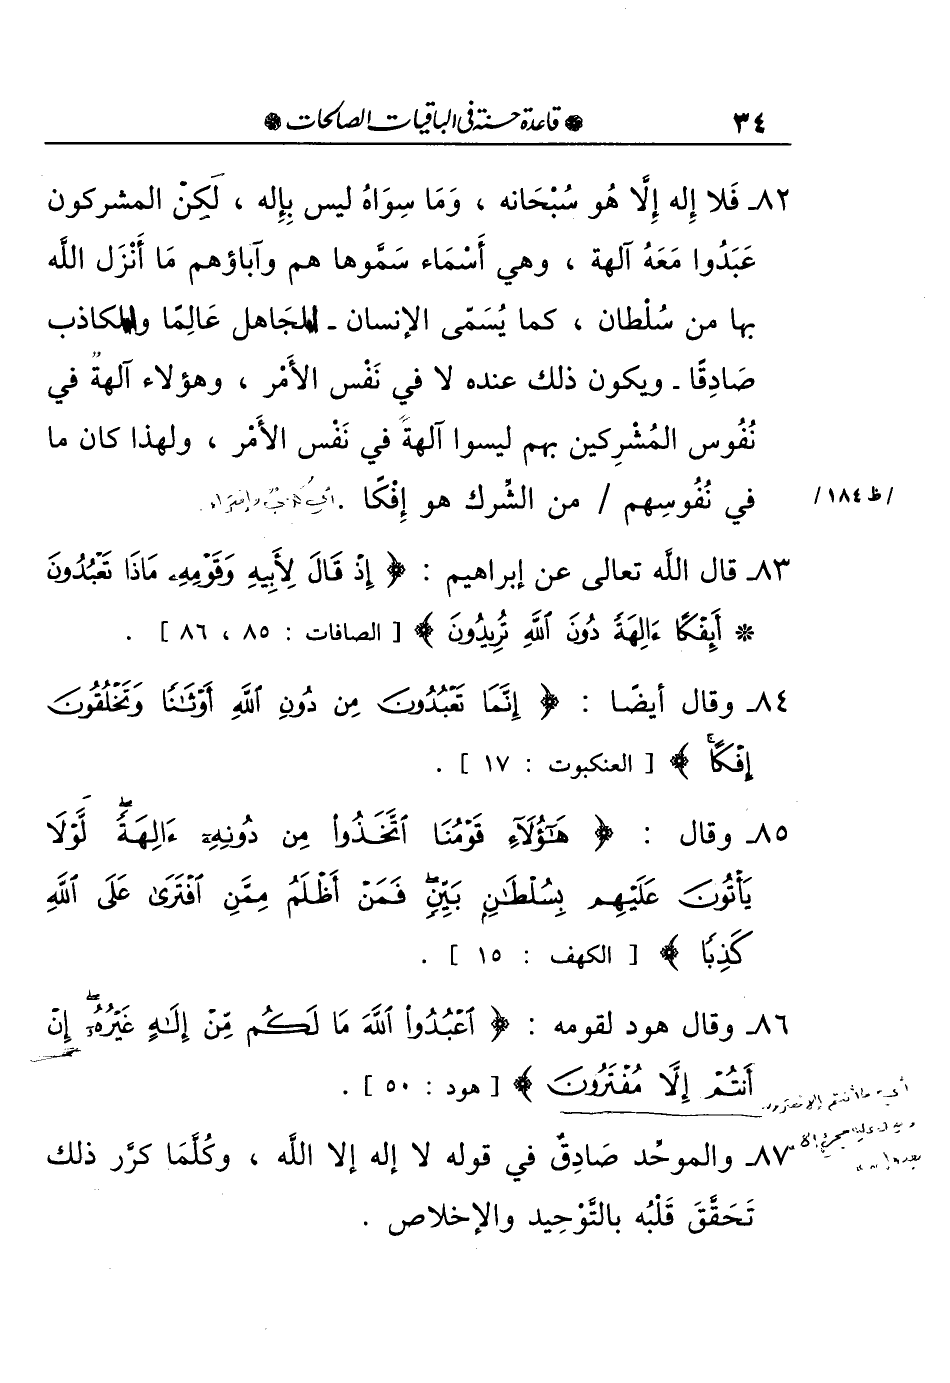 ٣٤ * قاعدة حسنة في الباقيات الصالحات *
٨٢ـ فَلا إله إِلَّا هُو سُبْحَانه ، وَمَا سِوَاهُ ليس بِإِله ، لَكِنْ المشركون
عَبَدُوا مَعَهُ آلهة ، وهي أَسْمَاء سَمَّوها هم وآباؤهم مَا أَنْزَل الله
بها من سُلْطان ، كما يُسَمّى الإنسان ـ الجَاهل عَالِمًا والكاذب
صَادِقًا ـ ويكون ذلك عنده لا في نَفْس الأَمْر ، وهؤلاء آلهةٌ في
نُفُوس المُشْرِكين بهم ليسوا آلهةً في نَفْس الأَمْر ، ولهذا كان ما
في نُفُوسِهم / من الشِّرك هو إِفْكًا . أي كذبٌ وافتراء .
/ظ ١٨٤/
٨٣ـ قال اللَّه تعالى عن إبراهيم : ﴿ إِذْ قَالَ لِأَبِيهِ وَقَوْمِهِۦ مَاذَا تَعْبُدُونَ
* أَئِفْكًا ءَالِهَةً دُونَ ٱللَّهِ تُرِيدُونَ ﴾ [ الصافات : ٨٥ ، ٨٦ ] .
٨٤ـ وقال أيضًا : ﴿ إِنَّمَا تَعْبُدُونَ مِن دُونِ ٱللَّهِ أَوْثَٰنًا وَتَخْلُقُونَ
إِفْكًاۚ ﴾ [ العنكبوت : ١٧ ] .
٨٥ـ وقال : ﴿ هَٰٓؤُلَآءِ قَوْمُنَا ٱتَّخَذُوا۟ مِن دُونِهِۦٓ ءَالِهَةًۖ لَّوْلَا
يَأْتُونَ عَلَيْهِم بِسُلْطَٰنٍۭ بَيِّنٍۖ فَمَنْ أَظْلَمُ مِمَّنِ ٱفْتَرَىٰ عَلَى ٱللَّهِ
كَذِبًا ﴾ [ الكهف : ١٥ ] .
٨٦ـ وقال هود لقومه : ﴿ ٱعْبُدُوا۟ ٱللَّهَ مَا لَكُم مِّنْ إِلَٰهٍ غَيْرُهُۥٓۖ إِنْ
أَنتُمْ إِلَّا مُفْتَرُونَ ﴾ [ هود : ٥٠ ] .
أي ما أنتم إلا مفترون
٨٧ـ والموحِّد صَادِقٌ في قوله لا إله إلا اللَّه ، وكُلَّمَا كرَّر ذلك
تَحَقَّقَ قَلْبُه بالتَّوْحِيد والإخلاص .